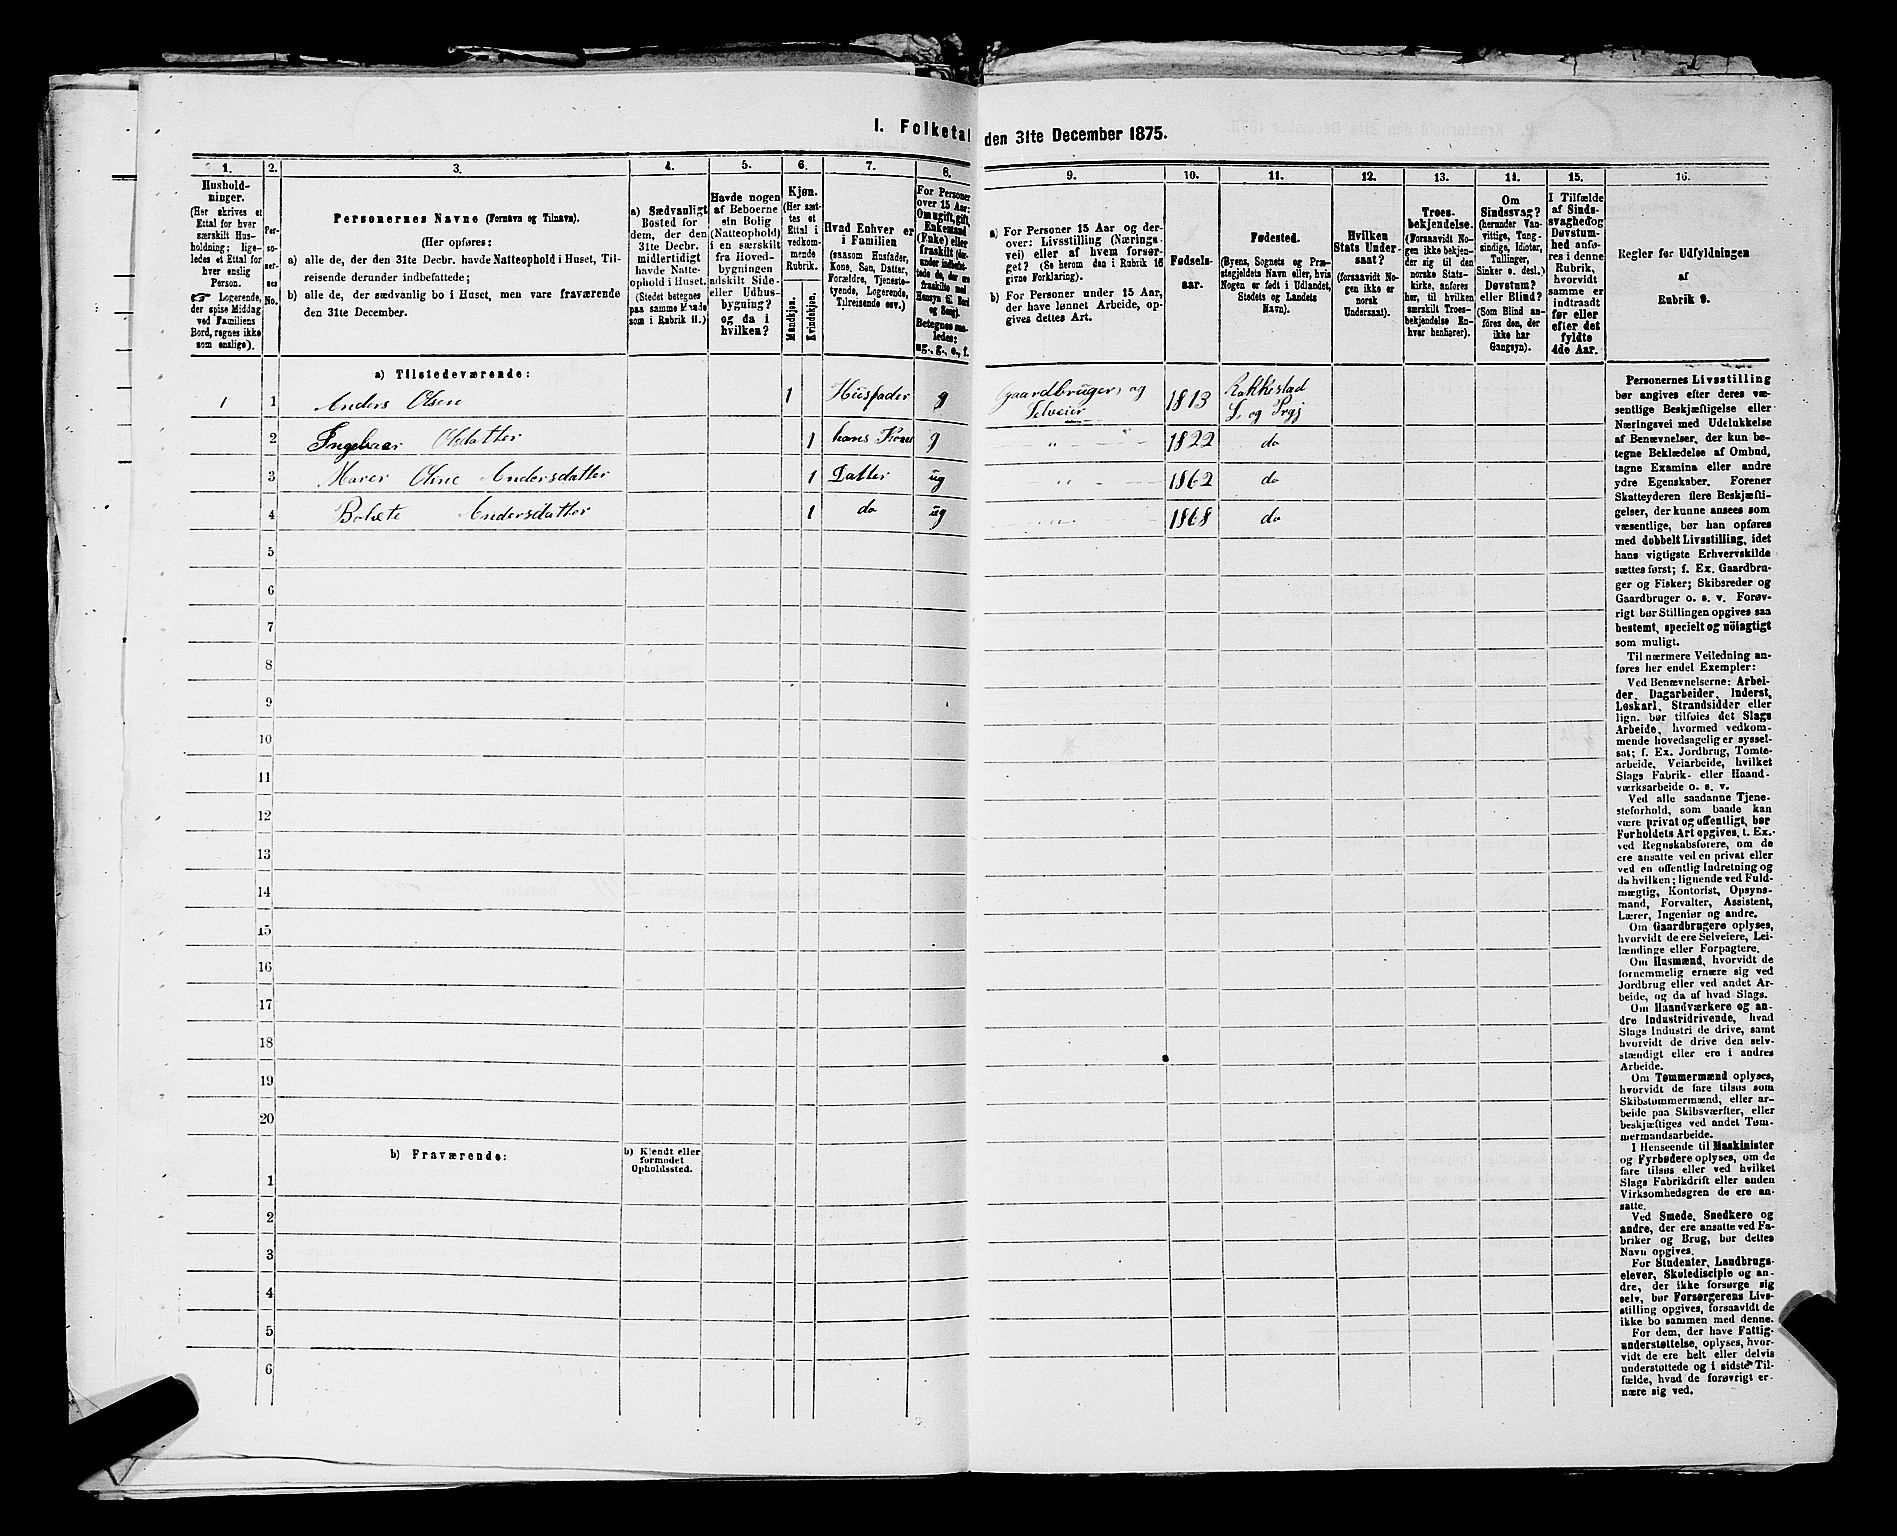 I. Folketal den 31te December 1875.
1.
Hushold-
ninger.
(Her skrives et
Ettal for hver
særskilt Hus-
holdning; lige-
ledes et Ettal for
hver enslig
Person.
☞ Logerende,
der spise Middag
ved Familiens
Bord, regnes ikke
som enslige).
2.
Per-
soner-
nes
No.
3.
Personernes Navne (Fornavn og Tilnavn).
(Her opføres:
a) alle de, der den 31te Decbr. havde Natteophold i Huset, Til-
reisende derunder indbefattede;
b) alle de, der sædvanlig bo i Huset, men vare fraværende
den 31te December.
4.
a) Sædvanligt
Bosted for
dem, der den
31te Decbr.
midlertidigt
havde Natte-
ophold i Huset.
(Stedet betegnes
paa samme Maade
som i Rubrik 11.)
5.
Havde nogen
af Beboerne
sin Bolig
(Natteophold)
i en særskilt
fra Hoved-
bygningen
adskilt Side-
eller Udhus-
bygning?
og da i
hvilken?
6.
Kjøn.
(Her sæt-
tes et
Ettal i
vedkom-
mende
Rubrik.
Mandkjøn.
Kvindekjøn.
7.
Hvad Enhver er
i Familien
(saasom Husfader,
Kone, Søn, Datter,
Forældre, Tjeneste-
tyende, Logerende,
Tilreisende osv.)
8.
For Personer
over 15 Aar:
Om ugift, gift,
Enkemand
(Enke) eller
fraskilt
Betegnes saa-
ledes:
ug., g., e., f.
9.
a) For Personer 15 Aar og der-
over: Livsstilling (Nærings-
vei) eller af hvem forsør-
get? (Se herom den i Rubrik 16
givne Forklaring).
b) For Personer under 15 Aar,
der have lønnet Arbeide, op-
gives dettes Art.
10.
Fødsels-
aar.
11.
Fødested.
(Byens, Sognets og Præ-
stegjeldets Navn eller, hvis
Nogen er født i Udlandet,
Stedets og Landets
Navn).
12.
Hvilken
Stats Under-
saat?
(forsaavidt No-
gen ikke er
norsk
Undersaat).
13.
Troes-
bekjendelse.
(Forsaavidt No-
gen ikke bekjen-
der sig til den
norske Stats-
kirke, anføres
her, til hvilken
særskilt Troes-
bekjendelse En-
hver henhører).
14.
Om
Sindssvag?
(herunder Van-
vittige, Tung-
sindige, Idioter,
Tullinger,
Sinker o. desl.)
Døvstum?
eller Blind?
(Som Blind an-
føres den, der
ikke har
Gangsyn).
15.
I Tilfælde
af Sinds-
svaghed og
Døvstum-
hed anfø-
res i denne
Rubrik,
hvorvidt
samme er
indtraadt
før eller
efter det
fyldte
4de Aar.
16.
Regler for Udfyldningen
af
Rubrik 9.
a) Tilstedeværende:
1 1 Anders Olsen 1 Husfader g Gaardbruger og Selveier 1813 Rakkestad S. og Prgj
2 Ingebaar Olsdatter 1 hans Kone g " 1822 do
3 Maren Oline Andersdatter 1 Datter ug " 1862 do
4 Bolete Andersdatter 1 do ug 1868 do
5
6
7
8
9
10
11
12
13
14
15
16
17
18
19
20
b) Fraværende:
b) Kjendt eller
formodet
Opholdssted.
1
2
3
4
5
6
Personernes Livsstilling
bør angives efter deres væ-
sentlige Beskjæftigelse eller
Næringsvei med Udelukkelse
af Benævnelser, der kun be-
tegne Beklædelse af Ombud,
tagne Examina eller andre
ydre Egenskaber. Forener
Skatteyderen flere Beskjæfti-
gelser, der kunne ansees som
væsentlige, bør han opføres
med dobbelt Livsstilling, idet
hans vigtigste Erhvervskilde
sættes først; f. Ex. Gaardbru-
ger og Fisker; Skibsreder og
Gaardbruger o. s. v. Forøv-
rigt bør Stillingen opgives saa
bestemt, specielt og nöiagtigt
som muligt.
Til nærmere Veiledning an-
føres her endel Exempler:
Ved Benævnelserne: Arbei-
der, Dagarbeider, Inderst,
Løskarl, Strandsidder eller
lign. bør tilføies det Slags
Arbeide, hvormed vedkom-
mende hovedsagelig er syssel-
sat; f. Ex. Jordbrug, Tomte-
arbeide, Veiarbeide, hvilket
Slags Fabrik- eller Haand-
værksarbeide o. s. v.
Ved alle saadanne Tjene-
steforhold, som baade kan
være privat og offentligt, bør
Forholdets Art opgives, t. Ex.
ved Regnskabsførere, om de
ere ansatte ved en privat eller
ved en offentlig Indretning og
da hvilken; lignende ved Fuld-
mægtig, Kontorist, Opsyns-
mand, Forvalter, Assistent,
Lærer, Ingeniør og andre.
Om Gaardbrugere oplyses,
hvorvidt de ere Selveiere, Lei-
lændinge eller Forpagtere.
Om Husmænd, hvorvidt de
fornemmelig ernære sig ved
Jordbrug eller ved andet Ar-
beide, og da af hvad Slags.
Om Haandværkere og an-
dre Industridrivende, hvad
Slags Industri de drive, samt
hvorvidt de drive den selv-
stændigt eller ere i andres
Arbeide.
Om Tømmermænd oplyses,
hvorvidt de fare tilsøs som
Skibstømmermænd, eller ar-
beide paa Skibsværfter, eller
beskjæftiges ved andet Tøm-
mermandsarbeide.
I Henseende til Maskinister
og Fyrbødere oplyses, om de
fare tilsøs eller ved hvilket
Slags Fabrikdrift eller anden
Virksomhedsgren de ere an-
satte.
Ved Smede, Snedkere og
andre, der ere ansatte ved Fa-
briker og Brug, bør dettes
Navn opgives.
For Studenter, Landbrugs-
elever, Skoledisciple og an-
dre, der ikke forsørge sig
selv, bør Forsørgerens Livs-
stilling opgives, forsaavidt de
ikke bo sammen med denne.
For dem, der have Fattig-
understøttelse, oplyses, hvor-
vidt de ere helt eller delvis
understøttede og i sidste Til-
fælde, hvad de forøvrigt er-
nære sig ved.